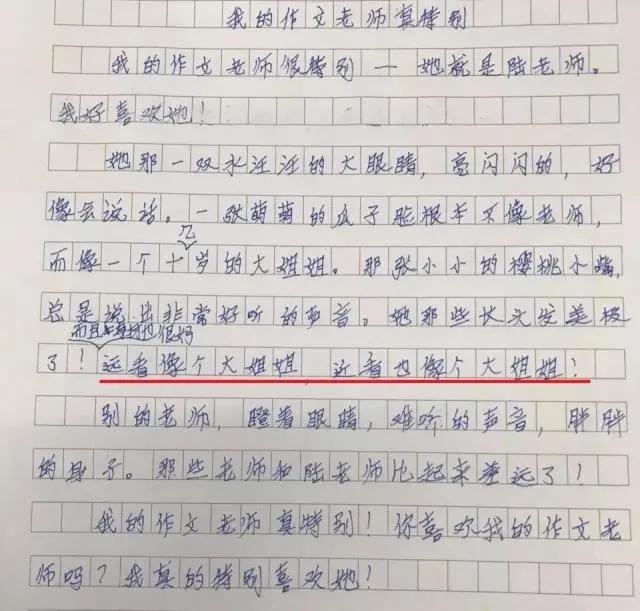 我的作文老师真特别
我的作文老师很特别一她就是陆老师。
我好喜欢她！
她那一双水汪汪的大眼睛，亮闪闪的，好
像会说话。一张萌萌的瓜子脸根本不像老师，
几
而像一个十岁的大姐姐。那张小小的樱桃小嘴，
总是说出非常好听的声音。她那些长头发美极
而且她身材也很好
了！远看像个大姐姐，近看也像个大姐姐！
别的老师，瞪着眼睛，难听的声音，胖胖
的身子。那些老师和陆老师比起来差远了！
我的作文老师真特别！你喜欢我的作文老
师吗？我真的特别喜欢她！